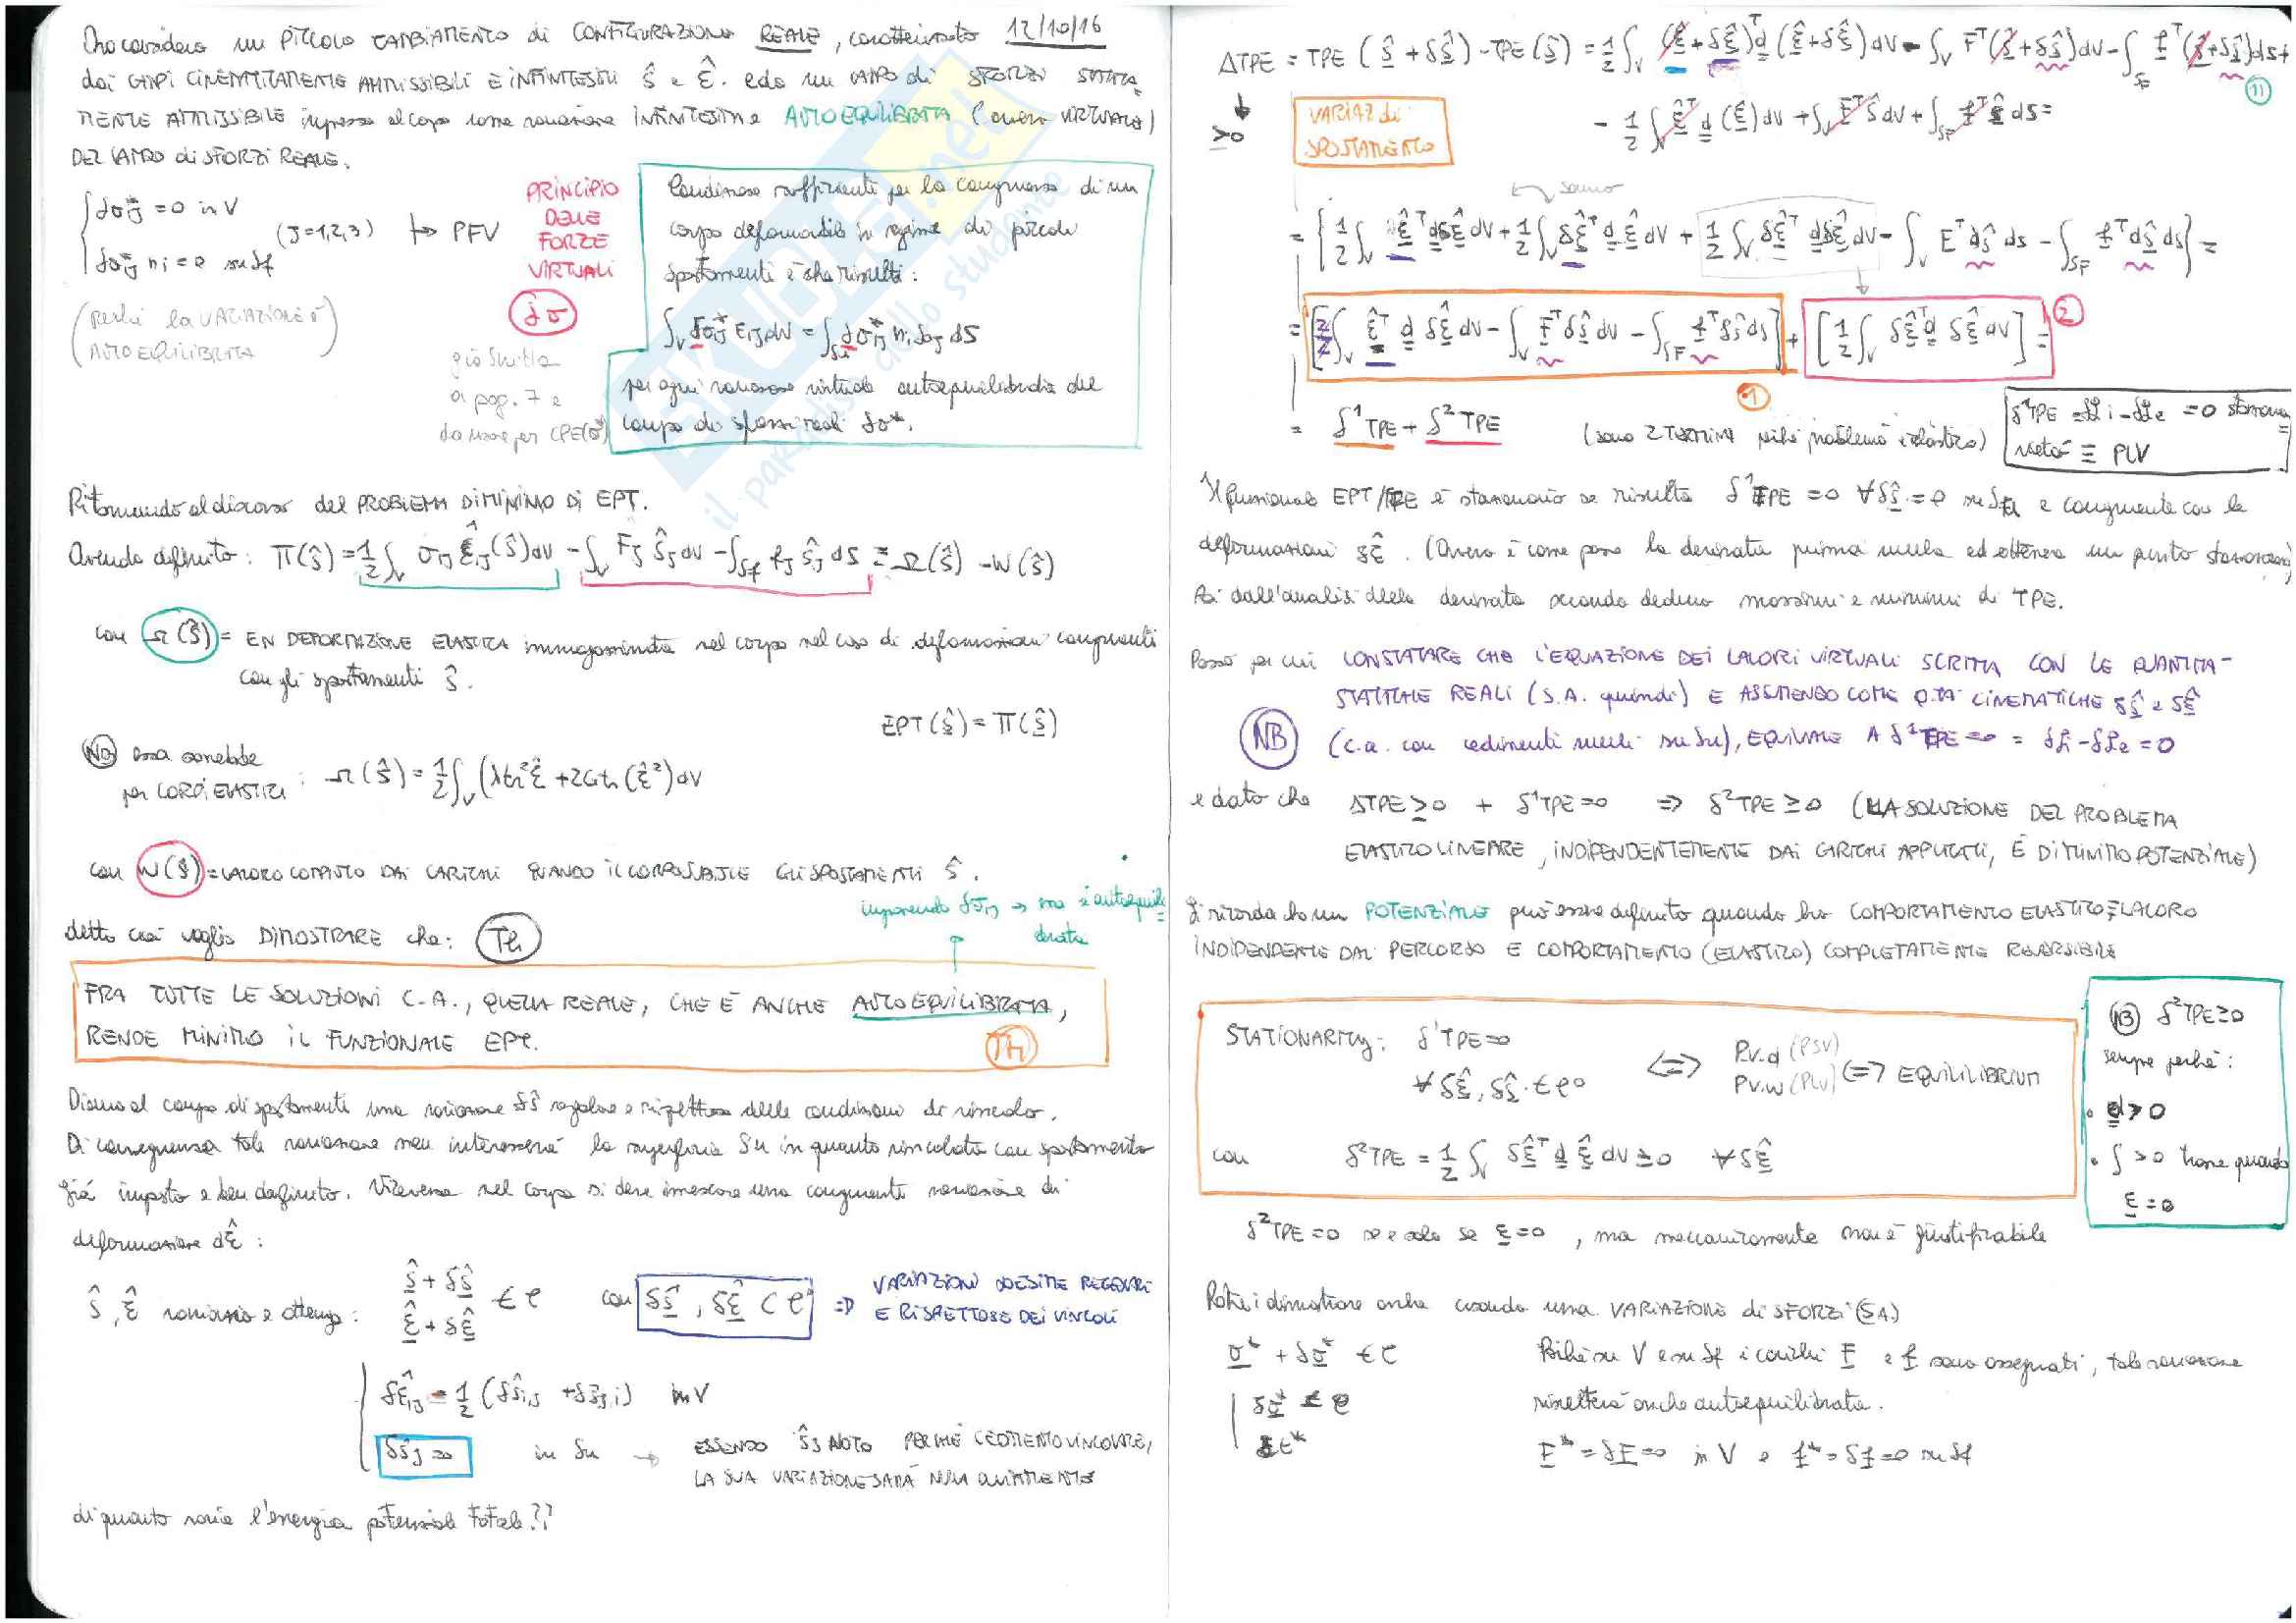 Ora considero un PICCOLO CAMBIAMENTO di CONFIGURAZIONE REALE, caratterizzato 12/10/16
dai CAMPI CINEMATICAMENTE AMMISSIBILI E INFINTESIMI ŝ e ε̂. e do un CAMPO di SFORZI STATICA-
MENTE AMMISSIBILE impresso al corpo come variazione INFINTESIMA e AUTOEQUILIBRATA (ovvero VIRTUALE)
DEL CAMPO di SFORZI REALE.
δσ*ij = 0 in V
(J=1,2,3) ↦ PFV
δσ*ij ni = 0 su Sf
(Perché la VARIAZIONE è
AUTOEQUILIBRATA)
PRINCIPIO
DELLE
FORZE
VIRTUALI
δσ
già scritta
a pag. 7 e
da usare per CPE(σ*)
Condizione sufficiente per la congruenza di un
corpo deformabile in regime di piccoli
spostamenti è che risulti:
∫V δσ*ij εij dV = ∫Su δσ*ij ni s0j dS
per ogni variazione virtuale autoequilibrata del
campo di sforzi reali δσ*.
Ritornando al discorso del PROBLEMA DI MINIMO DI EPT.
Avendo definito: Π(ŝ) = 1/2 ∫V σij ε̂ij(ŝ) dV - ∫V Fj ŝj dV - ∫Sf fj ŝj dS = Ω(ŝ) - W(ŝ)
con Ω(ŝ) = EN DEFORMAZIONE ELASTICA immagazzinata nel corpo nel caso di deformazioni congruenti
con gli spostamenti ŝ.
EPT(ŝ) = Π(ŝ)
NB essa sarebbe
per CORPI ELASTICI : Ω(ŝ) = 1/2 ∫V (λtr²ε̂ + 2Gtr(ε̂²) dV
con W(ŝ) = LAVORO COMPIUTO DAI CARICHI QUANDO IL CORPO SUBISCE GLI SPOSTAMENTI ŝ.
imponendo δσij → ma è autoequili
brata
detto ciò voglio DIMOSTRARE che: Th
FRA TUTTE LE SOLUZIONI C.A., QUELLA REALE, CHE È ANCHE AUTOEQUILIBRATA,
RENDE MINIMO IL FUNZIONALE EPT.
Th
Diamo al campo di spostamenti una variazione δŝ regolare e rispettosa delle condizioni di vincolo.
Di conseguenza tale variazione non interesserà la superficie Su in quanto vincolata con spostamento
già imposto e ben definito. Viceversa nel corpo si deve innescare una congruente variazione di
deformazione dε̂ :
ŝ, ε̂ variano e ottengo: ŝ + δŝ
ε̂ + δε̂ ∈ C con δŝ, δε̂ ⊂ C ⇒ VARIAZIONI COESIME REGOLARI
E RISPETTOSE DEI VINCOLI
δε̂ij = 1/2 (δŝi,j + δŝj,i) in V
δŝj = 0 in Su → ESSENDO ŝj NOTO PERCHÉ CEDIMENTO VINCOLARE,
LA SUA VARIAZIONE SARÀ NULLA OVVIAMENTE
di quanto varia l'energia potenziale totale??
ΔTPE = TPE (ŝ + δŝ) - TPE(ŝ) = 1/2 ∫V (ε̂+δε̂)ᵀ d (ε̂+δε̂) dV - ∫V Fᵀ(ŝ+δŝ) dV - ∫SF fᵀ(ŝ+δŝ) dS +
11
≥0 VARIAZ di
SPOSTAMENTO
- 1/2 ∫V ε̂ᵀ d (ε̂) dV + ∫V Fᵀ ŝ dV + ∫SF fᵀ ŝ dS =
sommo
= { 1/2 ∫V ε̂ᵀ d δε̂ dV + 1/2 ∫V δε̂ᵀ d ε̂ dV + 1/2 ∫V δε̂ᵀ d δε̂ dV - ∫V Fᵀ δŝ ds - ∫SF fᵀ δŝ ds } =
= [ 2/2 ∫V ε̂ᵀ d δε̂ dV - ∫V Fᵀ δŝ dV - ∫SF fᵀ δŝ ds ] + [ 1/2 ∫V δε̂ᵀ d δε̂ dV ] =
1 2
= δ¹TPE + δ²TPE (sono 2 TERMINI perché problema è elastico)
δ¹TPE = δLi - δLe = 0 staziona
rietà ≡ PLV
Il funzionale EPT/TPE è stazionario se risulta δ¹TPE = 0 ∀δŝ = 0 su Su e congruente con le
deformazioni δε̂. (Ovvero è come porre la derivata prima nulla ed ottenere un punto stazionario)
Poi dall'analisi della derivata seconda deduco massimi e minimi di TPE.
Posso per cui CONSTATARE CHE L'EQUAZIONE DEI LAVORI VIRTUALI SCRITTA CON LE QUANTITÀ-
STATICHE REALI (S.A. quindi) E ASSUMENDO COME Q.TÀ CINEMATICHE δŝ e δε̂
NB (c.a. con cedimenti nulli su Su), EQUIVALE A δ¹TPE = 0 = δLi - δLe = 0
e dato che ΔTPE ≥ 0 + δ¹TPE = 0 ⇒ δ²TPE ≥ 0 (LA SOLUZIONE DEL PROBLEMA
ELASTICO LINEARE, INDIPENDENTEMENTE DAI CARICHI APPLICATI, È DI MINIMO POTENZIALE)
Si ricorda che un POTENZIALE può essere definito quando ho COMPORTAMENTO ELASTICO, LAVORO
INDIPENDENTE DAL PERCORSO E COMPORTAMENTO (ELASTICO) COMPLETAMENTE REVERSIBILE
STATIONARITY: δ¹TPE = 0
∀ δε̂, δŝ ∈ C⁰ ⟺ P.v.d (PSV)
P.v.w (PLV) ⟺ EQUILILIBRIUM
con δ²TPE = 1/2 ∫V δε̂ᵀ d ε̂ dV ≥ 0 ∀ δε̂
NB δ²TPE ≥ 0
sempre perché:
• d > 0
• ∫ > 0 tranne quando
ε = 0
δ²TPE = 0 se e solo se ε = 0, ma meccanicamente non è giustificabile
Potrei dimostrare anche usando una VARIAZIONE di SFORZI (SA)
σ* + δσ* ∈ C Poiché su V e su Sf i carichi F e f sono assegnati, tale variazione
risulterà anche autoequilibrata.
F* = δF = 0 in V e f* = δf = 0 su Sf